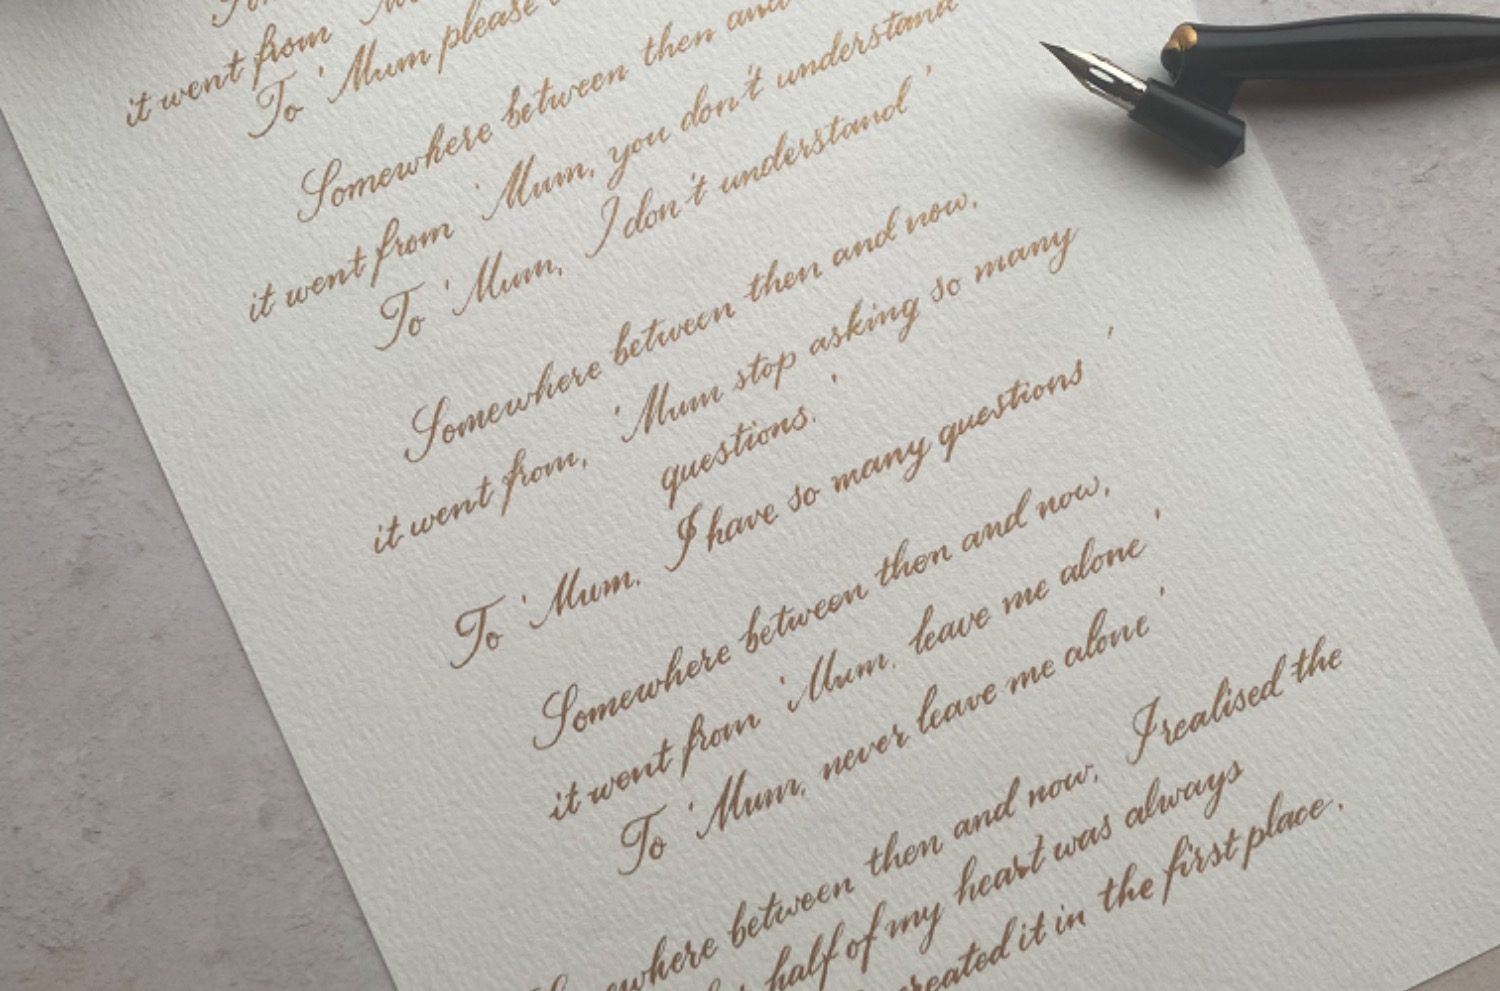 it went from
To 'Mum please
Somewhere between then and
it went from 'Mum, you don't understand
To 'Mum, I don't understand'
Somewhere between then and now,
it went from, 'Mum stop asking so many
questions.'
To 'Mum, I have so many questions'
Somewhere between then and now,
it went from 'Mum, leave me alone'
To 'Mum, never leave me alone'
Somewhere between then and now, I realised the
half of my heart was always
created it in the first place.